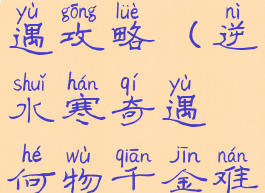 yù gōng lüè nì
遇攻略（逆
shuǐ hán qí yù
水寒奇遇
hé wù qiān jīn nán
何物千金难